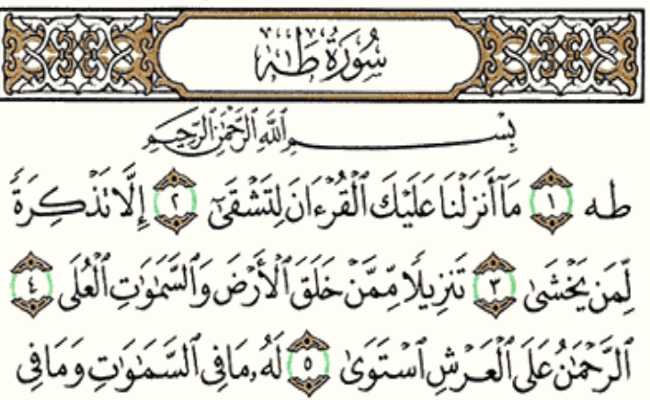 سُورَةُ طٰهٰ
بِسْمِ ٱللَّهِ ٱلرَّحْمَٰنِ ٱلرَّحِيمِ
طه ١ مَآ أَنزَلْنَا عَلَيْكَ ٱلْقُرْءَانَ لِتَشْقَىٰٓ ٢ إِلَّا تَذْكِرَةً
لِّمَن يَخْشَىٰ ٣ تَنزِيلًا مِّمَّنْ خَلَقَ ٱلْأَرْضَ وَٱلسَّمَٰوَٰتِ ٱلْعُلَى ٤
ٱلرَّحْمَٰنُ عَلَى ٱلْعَرْشِ ٱسْتَوَىٰ ٥ لَهُۥ مَا فِى ٱلسَّمَٰوَٰتِ وَمَا فِى